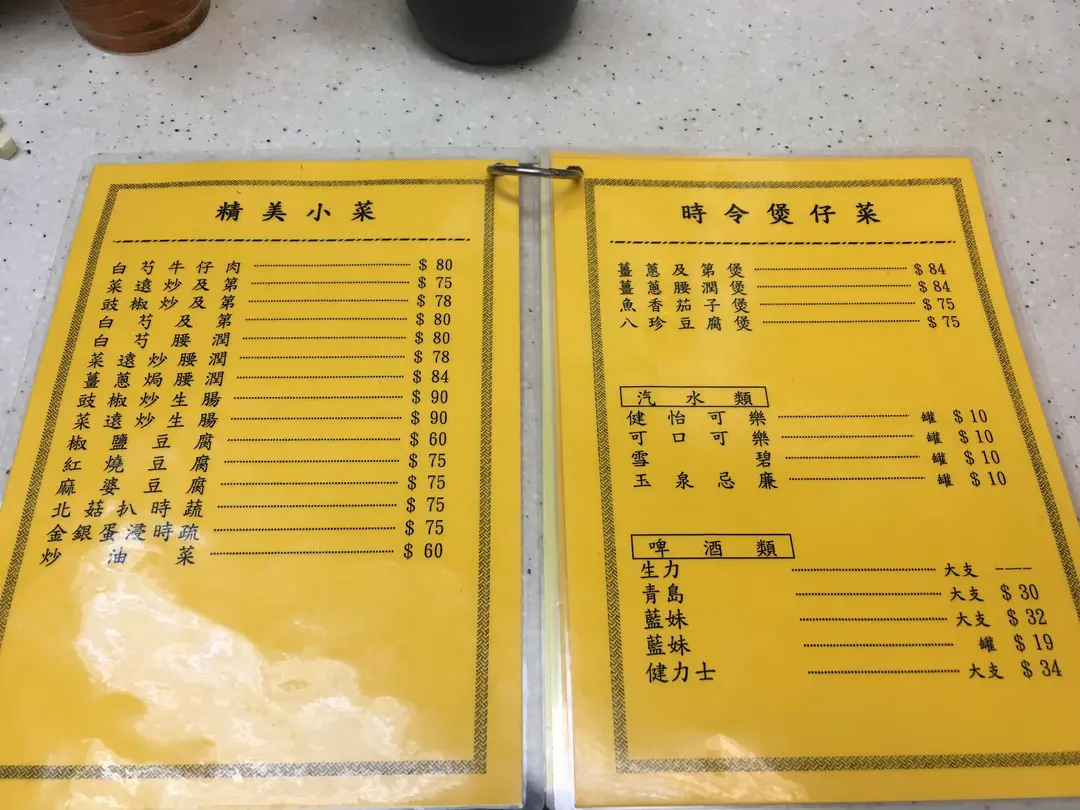 精美小菜
白芍牛仔肉 $ 80
菜遠炒及第 $ 75
豉椒炒及第 $ 78
白芍及第 $ 80
白芍腰潤 $ 80
菜遠炒腰潤 $ 78
薑蔥焗腰潤 $ 84
豉椒炒生腸 $ 90
菜遠炒生腸 $ 90
椒鹽豆腐 $ 60
紅燒豆腐 $ 75
麻婆豆腐 $ 75
北菇扒時蔬 $ 75
金銀蛋浸時疏 $ 75
炒油菜 $ 60
時令煲仔菜
薑蔥及第煲 $ 84
薑蔥腰潤煲 $ 84
魚香茄子煲 $ 75
八珍豆腐煲 $ 75
汽水類
健怡可樂 罐 $ 10
可口可樂 罐 $ 10
雪碧 罐 $ 10
玉泉忌廉 罐 $ 10
啤酒類
生力 大支 ---
青島 大支 $ 30
藍妹 大支 $ 32
藍妹 罐 $ 19
健力士 大支 $ 34